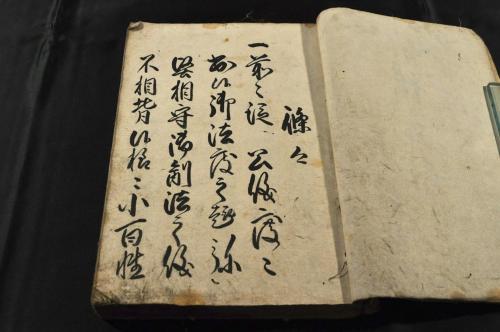 條々
一前々従 公儀度々
候御法度之趣弥
堅相守御制法之儀
不相背候様ニ小百姓